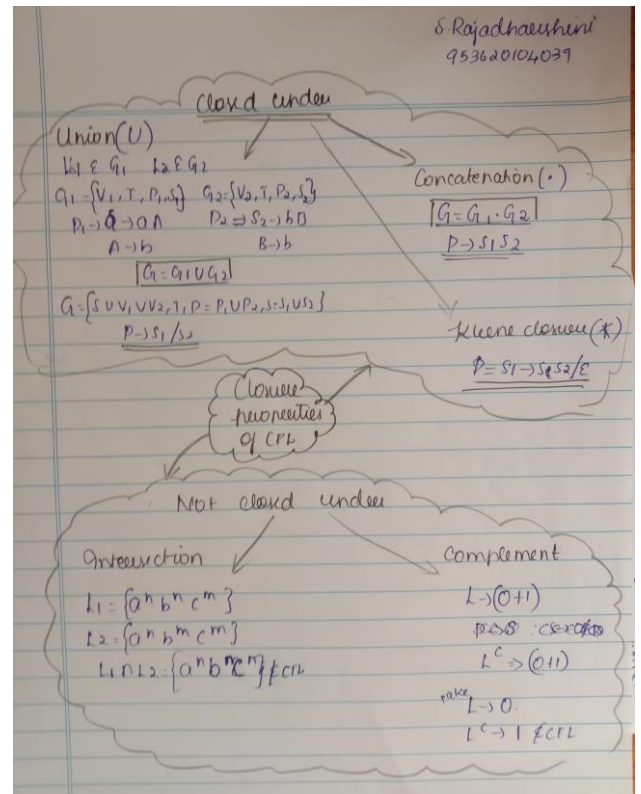 S. Rajadhaershini
953620104039
Closed under
Union (U)
L1 ε G1 L2 ε G2
G1 = {V1, T, P1, S1} G2 = {V2, T, P2, S2}
P1 → a → aA P2 ⇒ S2 → bB
A → b B → b
G = G1 U G2
G = {S U V1 U V2, T, P = P1 U P2, S = S1 U S2}
P → S1 / S2
Concatenation (.)
G = G1 . G2
P → S1 S2
Kleene closure (*)
P = S1 → S1 S2 / ε
Closure
properties
of CFL
Not closed under
Intersection
L1 = {aⁿ bⁿ cᵐ}
L2 = {aⁿ bᵐ cᵐ}
L1 ∩ L2 = {aⁿ bᵐ cᵐ} ∉ CFL
Complement
L → (0+1)
Lᶜ ⇒ (0+1)
take L → 0.
Lᶜ → 1 ∉ CFL